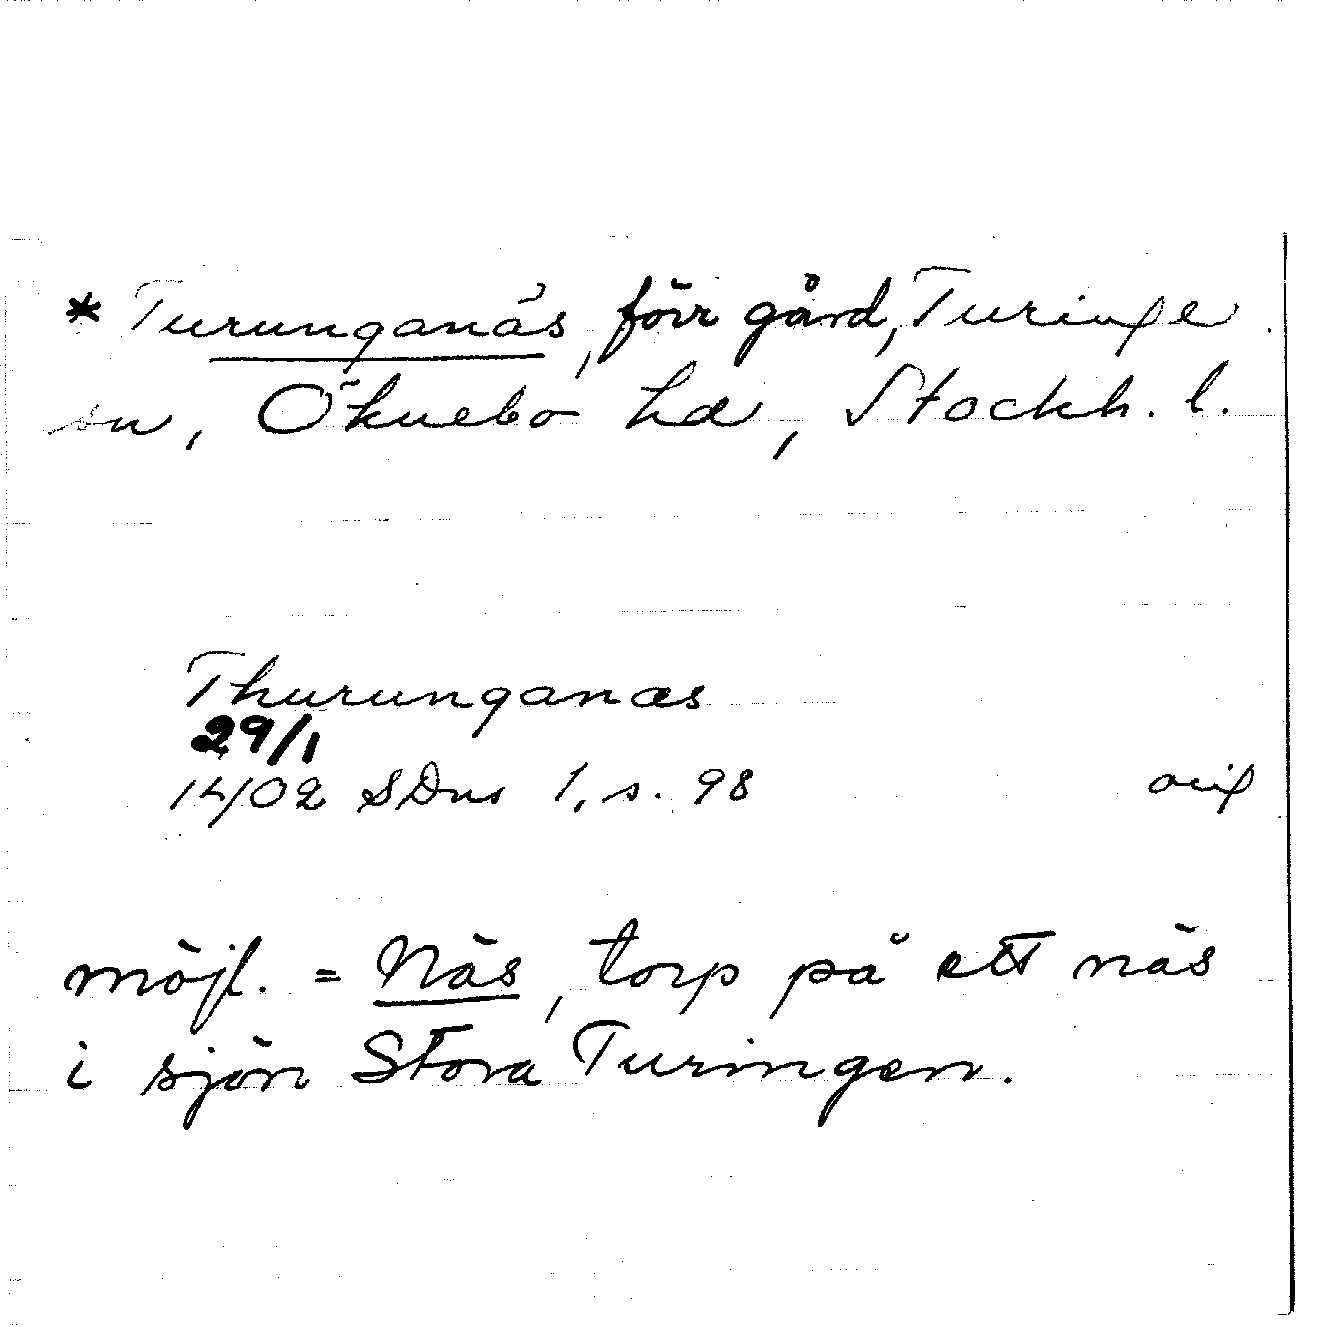 * Turunganäs, förr gård, Turinge
sn, Öknebo hd, Stockh. l.
Thurunganæs
29/1
1402 SDns 1, s. 98 orig
möjl. = Näs, torp på ett näs
i sjön Stora Turingen.